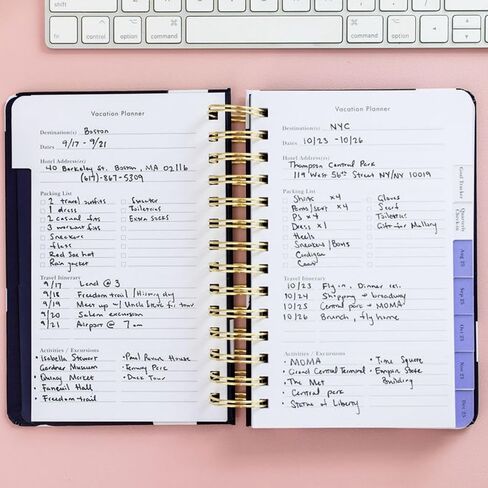 fn
control
option
command
command
option
control
Vacation Planner
Destination(s) Boston
Dates 9/17 - 9/21
Hotel Address(es)
40 Berkeley St. Boston, MA 02116
(617)-867-5309
Packing List
2 travel outfits
1 dress
2 casual fits
3 workout fits
Sneakers
floss
Red Sox hat
Rain jacket
Sweater
Toiletries
Extra socks
Travel Itinerary
9/17 Land @ 3
9/18 Freedom trail / History day
9/19 Meet up w/ Uncle Steve for tour
9/20 Salem excursion
9/21 Airport @ 7 am
Activities / Excursions
• Isabella Stewart
Gardner Museum
• Quincy Market
• Faneuil Hall
• Freedom trail
• Paul Revere House
• Fenway Park
• Duck Tour
Vacation Planner
Destination(s) NYC
Dates 10/23 - 10/26
Hotel Address(es)
Thompson Central Park
119 West 56th Street NY/NY 10019
Packing List
Shirts x4
Pants/skirt x4
PJs x4
Dress x1
Heels
Sneakers / Boots
Cardigan
Camera
Gloves
Scarf
Toiletries
Gift for Mallory
Travel Itinerary
10/23 Fly in, Dinner res.
10/24 Shopping + broadway
10/25 Central park + MOMA
10/26 Brunch, fly home
Activities / Excursions
• MOMA
• Grand Central Terminal
• The Met
• Central park
• Statue of Liberty
• Time Square
• Empire State
Building
Goal Tracker
Quarterly
Check-in
Aug 25
Sep 25
Oct 25
Nov 25
Dec 25